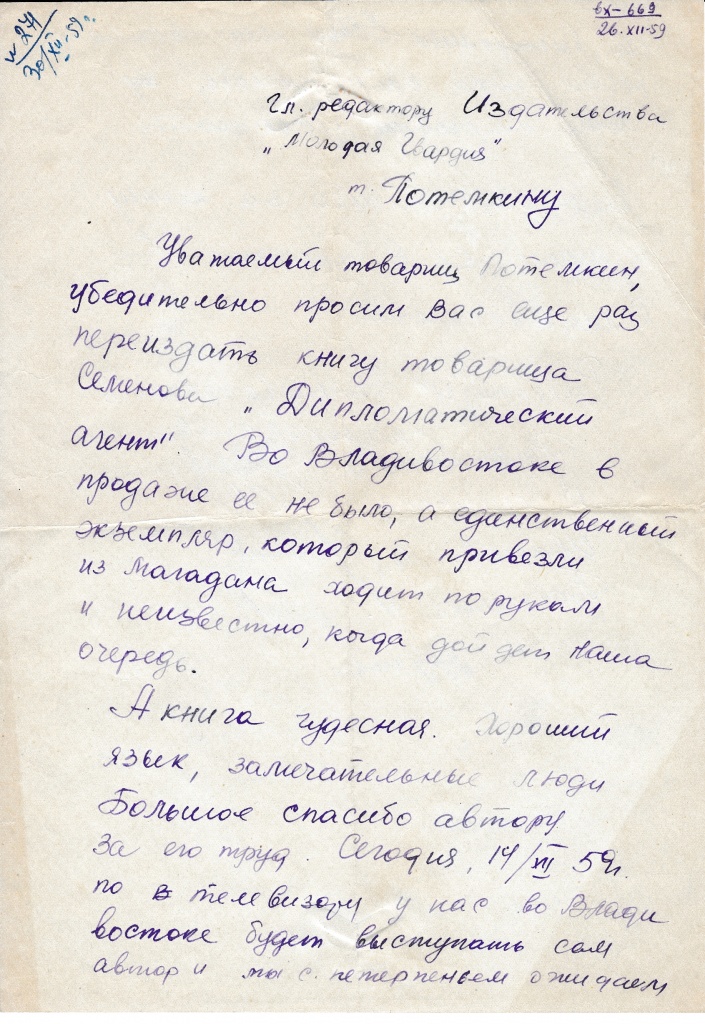 н 271
30/XII-59г.
вх-669
26.XII-59
Гл. редактору Издательства
„Молодая Гвардия"
т. Потемкину
Уважаемый товарищ Потемкин,
убедительно просим Вас еще раз
переиздать книгу товарища
Семенова „Дипломатический
агент". Во Владивостоке в
продаже ее не было, а единственный
экземпляр, который привезли
из Магадана ходит по рукам
и неизвестно, когда дойдет наша
очередь.
А книга чудесная. Хороший
язык, замечательные люди
Большое спасибо автору
за его труд. Сегодня, 14/XII 59г.
по в телевизору у нас во Влади
востоке будет выступать сам
автор и мы с нетерпеньем ожидаем